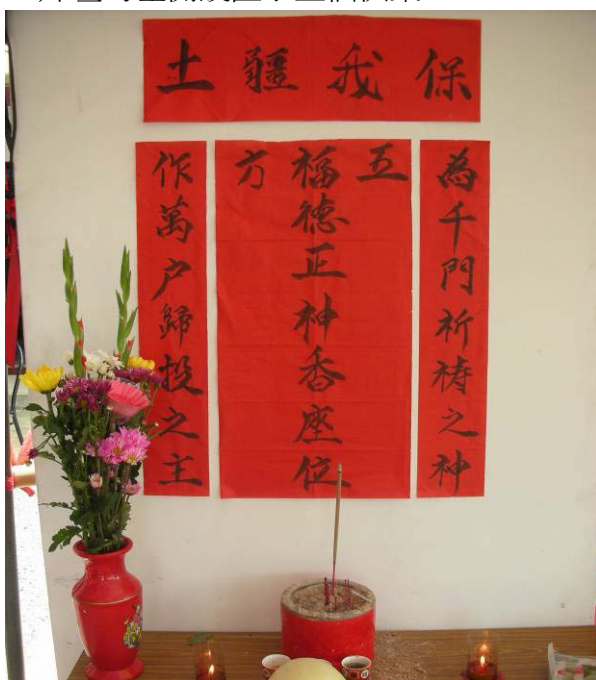 保我疆土
為千門祈禱之神
五方
福德正神香座位
作萬户歸投之主